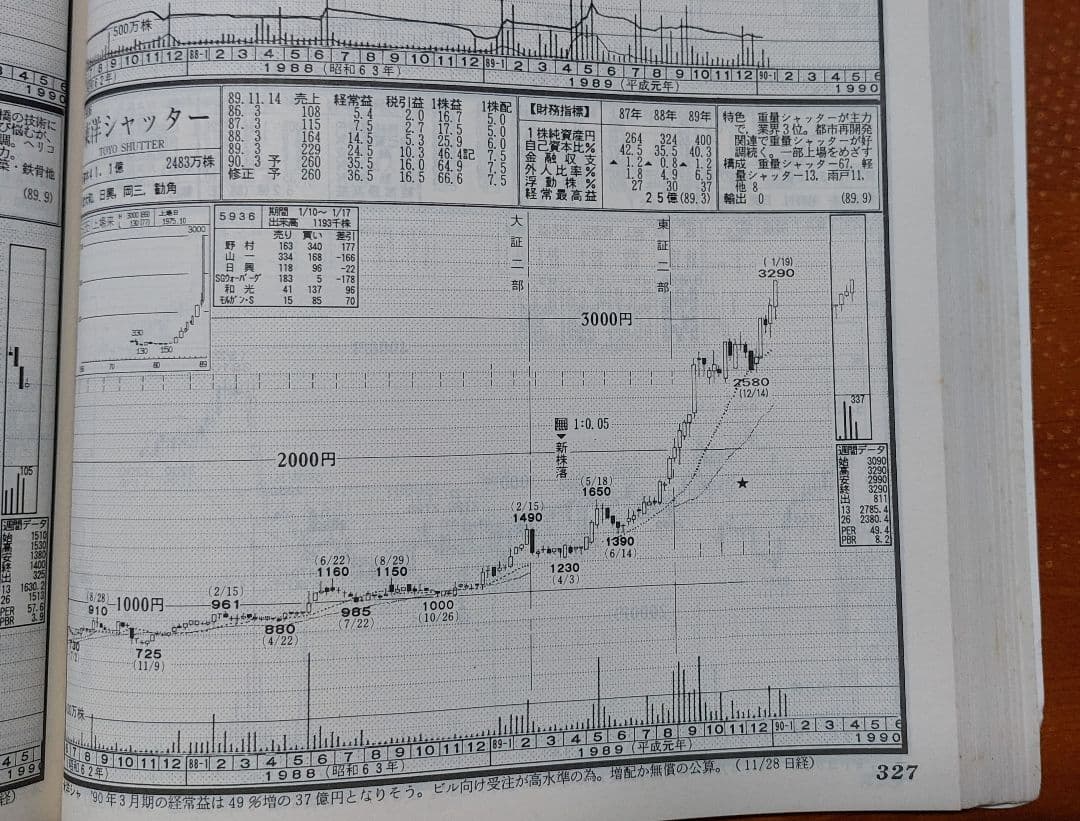 500万株
8 9 10 11 12 88-1 2 3 4 5 6 7 8 9 10 11 12 89-1 2 3 4 5 6 7 8 9 10 11 12 90-1 2 3 4 5 6
1988 (昭和63年)
1989 (平成元年)
1990
洋シャッター
TOYO SHUTTER
2483万株
岡三、勧角
89.11.14 売上 経常益 税引益 1株益 1株配
86. 3 108 5.4 2.0 16.7 5.0
87. 3 115 7.5 2.7 17.5 5.0
88. 3 164 14.5 5.3 25.9 6.0
89. 3 229 24.5 10.3 46.4記 7.5
90. 3 予 260 35.5 16.0 64.9 7.5
修正 予 260 36.5 16.5 66.6 7.5
【財務指標】 87年 88年 89年
1株純資産円 264 324 400
自己資本比% 42.5 35.5 40.3
金融収支 ▲1.2 ▲0.8 ▲1.2
外人比率% 1.8 4.9 6.5
浮動株% 27 30 37
経常最高益 25億(89.3)
特色 重量シャッターが主力
で、業界3位。都市再開発
関連で重量シャッターが好
調続く。一部上場をめざす
構成 重量シャッター67、軽
量シャッター13、雨戸11、
他 8
輸出 0 (89.9)
上場日
1975.10
3000
330
130 150
70 80 89
5936 期間 1/10〜1/17
出来高 1193千株
売り 買い 差引
野村 163 340 177
山一 334 168 -166
日興 118 96 -22
SGウォーバーグ 183 5 -178
和光 41 137 96
モルガン・S 15 85 70
大証二部
東証二部
(1/19)
3290
3000円
2580
(12/14)
1:0.05
新株落
2000円
(5/18)
1650
★
(2/15)
1490
1390
(6/14)
1230
(4/3)
(6/22)
1160
(8/29)
1150
(2/15)
961
(8/28)
910
1000円
985
(7/22)
1000
(10/26)
880
(4/22)
725
(11/9)
337
週間データ
始 3090
高 3290
安 2990
終 3290
出 811
13 2785.4
26 2380.4
PER 49.4
PBR 8.2
万株
8 9 10 11 12 88-1 2 3 4 5 6 7 8 9 10 11 12 89-1 2 3 4 5 6 7 8 9 10 11 12 90-1 2 3 4 5 6
1988 (昭和63年)
1989 (平成元年)
1990
'90年3月期の経常益は49%増の37億円となりそう。ビル向け受注が高水準の為。増配か無償の公算。(11/28日経)
327
(89.9)
105
週間データ
始 1510
高 1530
安 1380
終 1400
出 325
13 1630.2
26 1513
PER 57.6
PBR 3.9